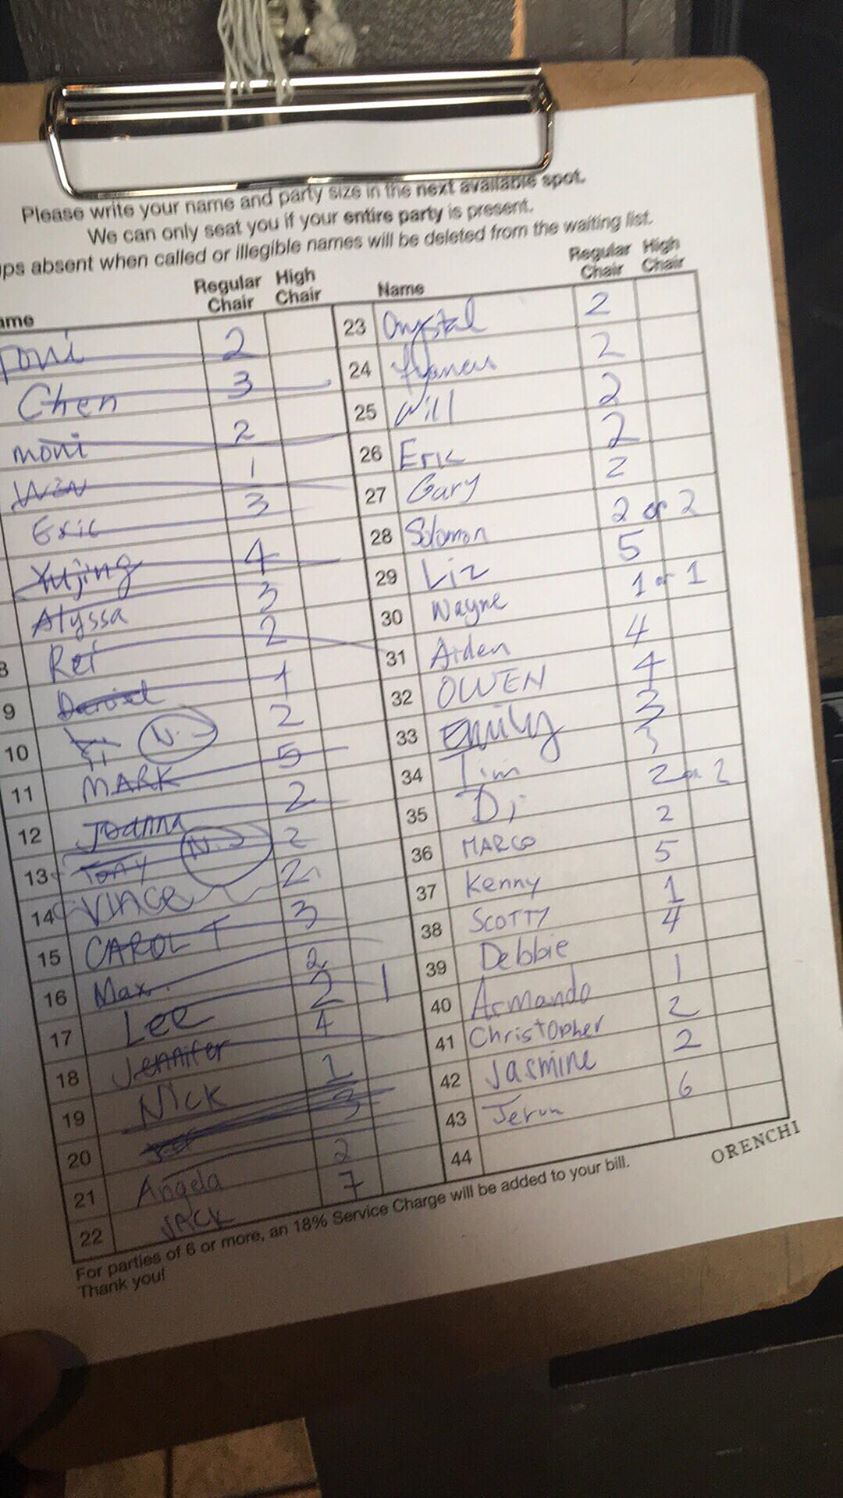 Please write your name and party size in the next available spot.
We can only seat you if your entire party is present.
ups absent when called or illegible names will be deleted from the waiting list.
ame Regular Chair High Chair
Toni 2
Chen 3
moni 2
Win 1
Eric 3
Yujing 4
Alyssa 3
8 Ref 2
9 Daniel 1
10 Yi N. 2
11 MARK 5
12 Joanna 2
13 Tony N.S 2
14 VINCE 2
15 CAROL T 3
16 Max 2
17 Lee 2 1
18 Jennifer 4
19 Nick 1
20 3
21 Angela 2
22 JACK 7
Name Regular Chair High Chair
23 Crystal 2
24 2
25 Will 2
26 Eric 2
27 Gary 2
28 Solomon 2 or 2
29 Liz 5
30 Wayne 1 or 1
31 Aiden 4
32 OWEN 4
33 Emily 3
34 Tim 3
35 Di 2 or 2
36 MARCO 2
37 Kenny 5
38 SCOTTY 1
39 Debbie 4
40 Armando 1
41 Christopher 2
42 Jasmine 2
43 6
44
For parties of 6 or more, an 18% Service Charge will be added to your bill.
Thank you!
ORENCHI